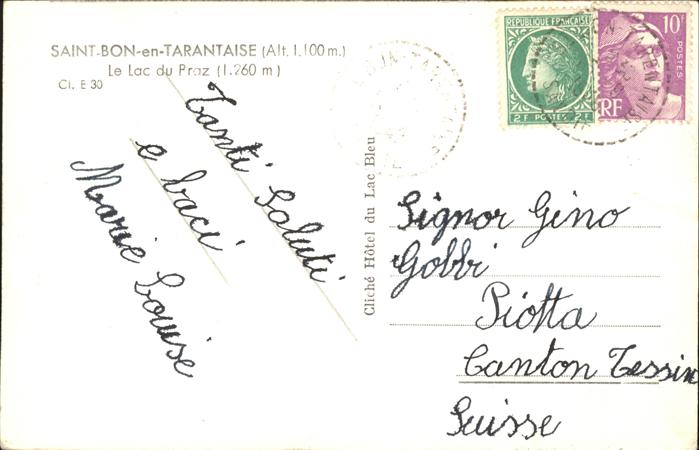 SAINT-BON-en-TARANTAISE (Alt. 1.100 m.)
Le Lac du Praz (1.260 m)
Cl. E 30
Tanti Saluti
e baci
Marie Louise
Cliché Hôtel du Lac Bleu
REPUBLIQUE FRANÇAISE
2F POSTES 2F
10F
POSTES
RF
Signor Gino
Gobbi
Piotta
Canton Tessin
Suisse